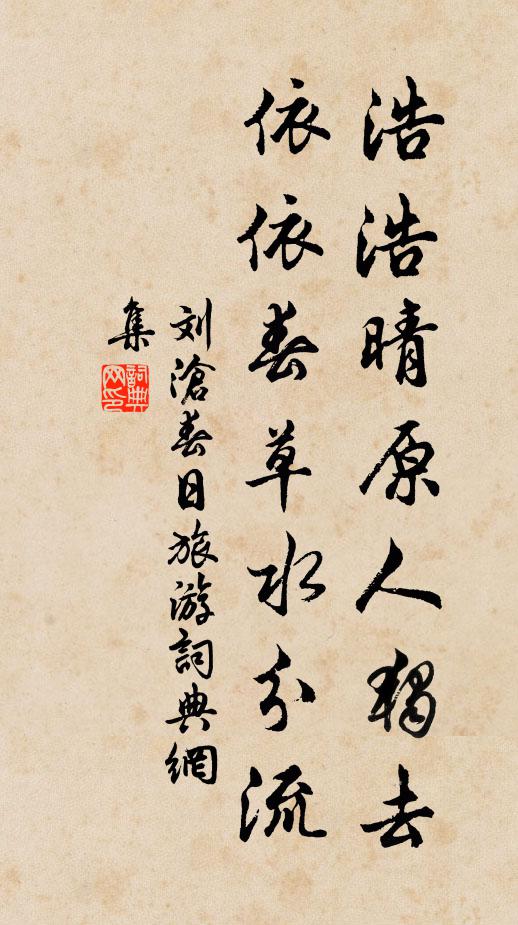 浩浩晴原人獨去
依依春草水分流
刘滄春日旅游詞典網
集
詞典網印